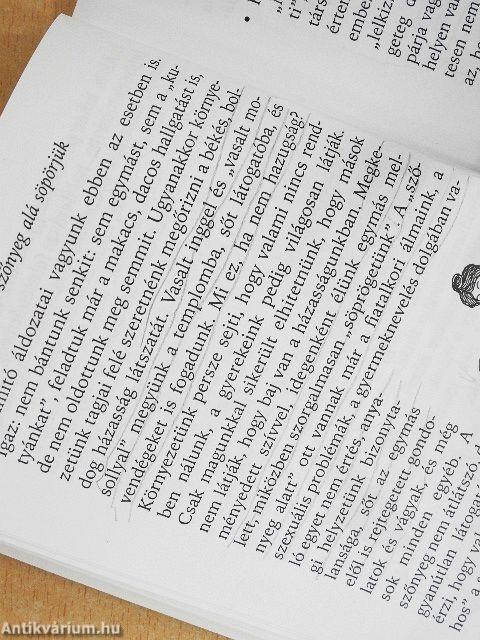 szőnyeg alá söpörjük
mító áldozatai vagyunk ebben az esetben is.
igaz: nem bántunk senkit: sem egymást, sem a „ku-
tyánkat”, feladtuk már a makacs, dacos hallgatást is,
de nem oldottunk meg semmit. Ugyanakkor környe-
zetünk tagjai felé szeretnénk megőrizni a békés, bol-
dog házasság látszatát. Vasalt inggel és „vasalt mo-
sollyal” megyünk a templomba, sőt látogatóba, és
vendégeket is fogadunk. Mi ez, ha nem hazugság?
Környezetünk persze sejti, hogy valami nincs rend-
ben nálunk, a gyerekeink pedig világosan látják.
Csak magunkkal sikerült elhitetnünk, hogy mások
nem látják, hogy baj van a házasságunkban. Megke-
ményedett szívvel, idegenként élünk egymás mel-
lett, miközben szorgalmasan „söprögetünk”. A „sző-
nyeg alatt” ott vannak már a fiatalkori álmaink, a
szexuális problémák, a gyermeknevelés dolgában va-
ló egyet nem értés, anya-
gi helyzetünk bizonyta-
lansága, sőt az egymás
elől is rejtegetett gondo-
latok és vágyak, és még
sok minden egyéb. A
szőnyeg nem átlátszó, d
gyanútlan látogató
érzi, hogy va
hos” a s
„lelkiz
geteg d
párja vag
helyen van
tesen nem
az, ho
ember
érten
társ
ti”
Antikvárium.hu